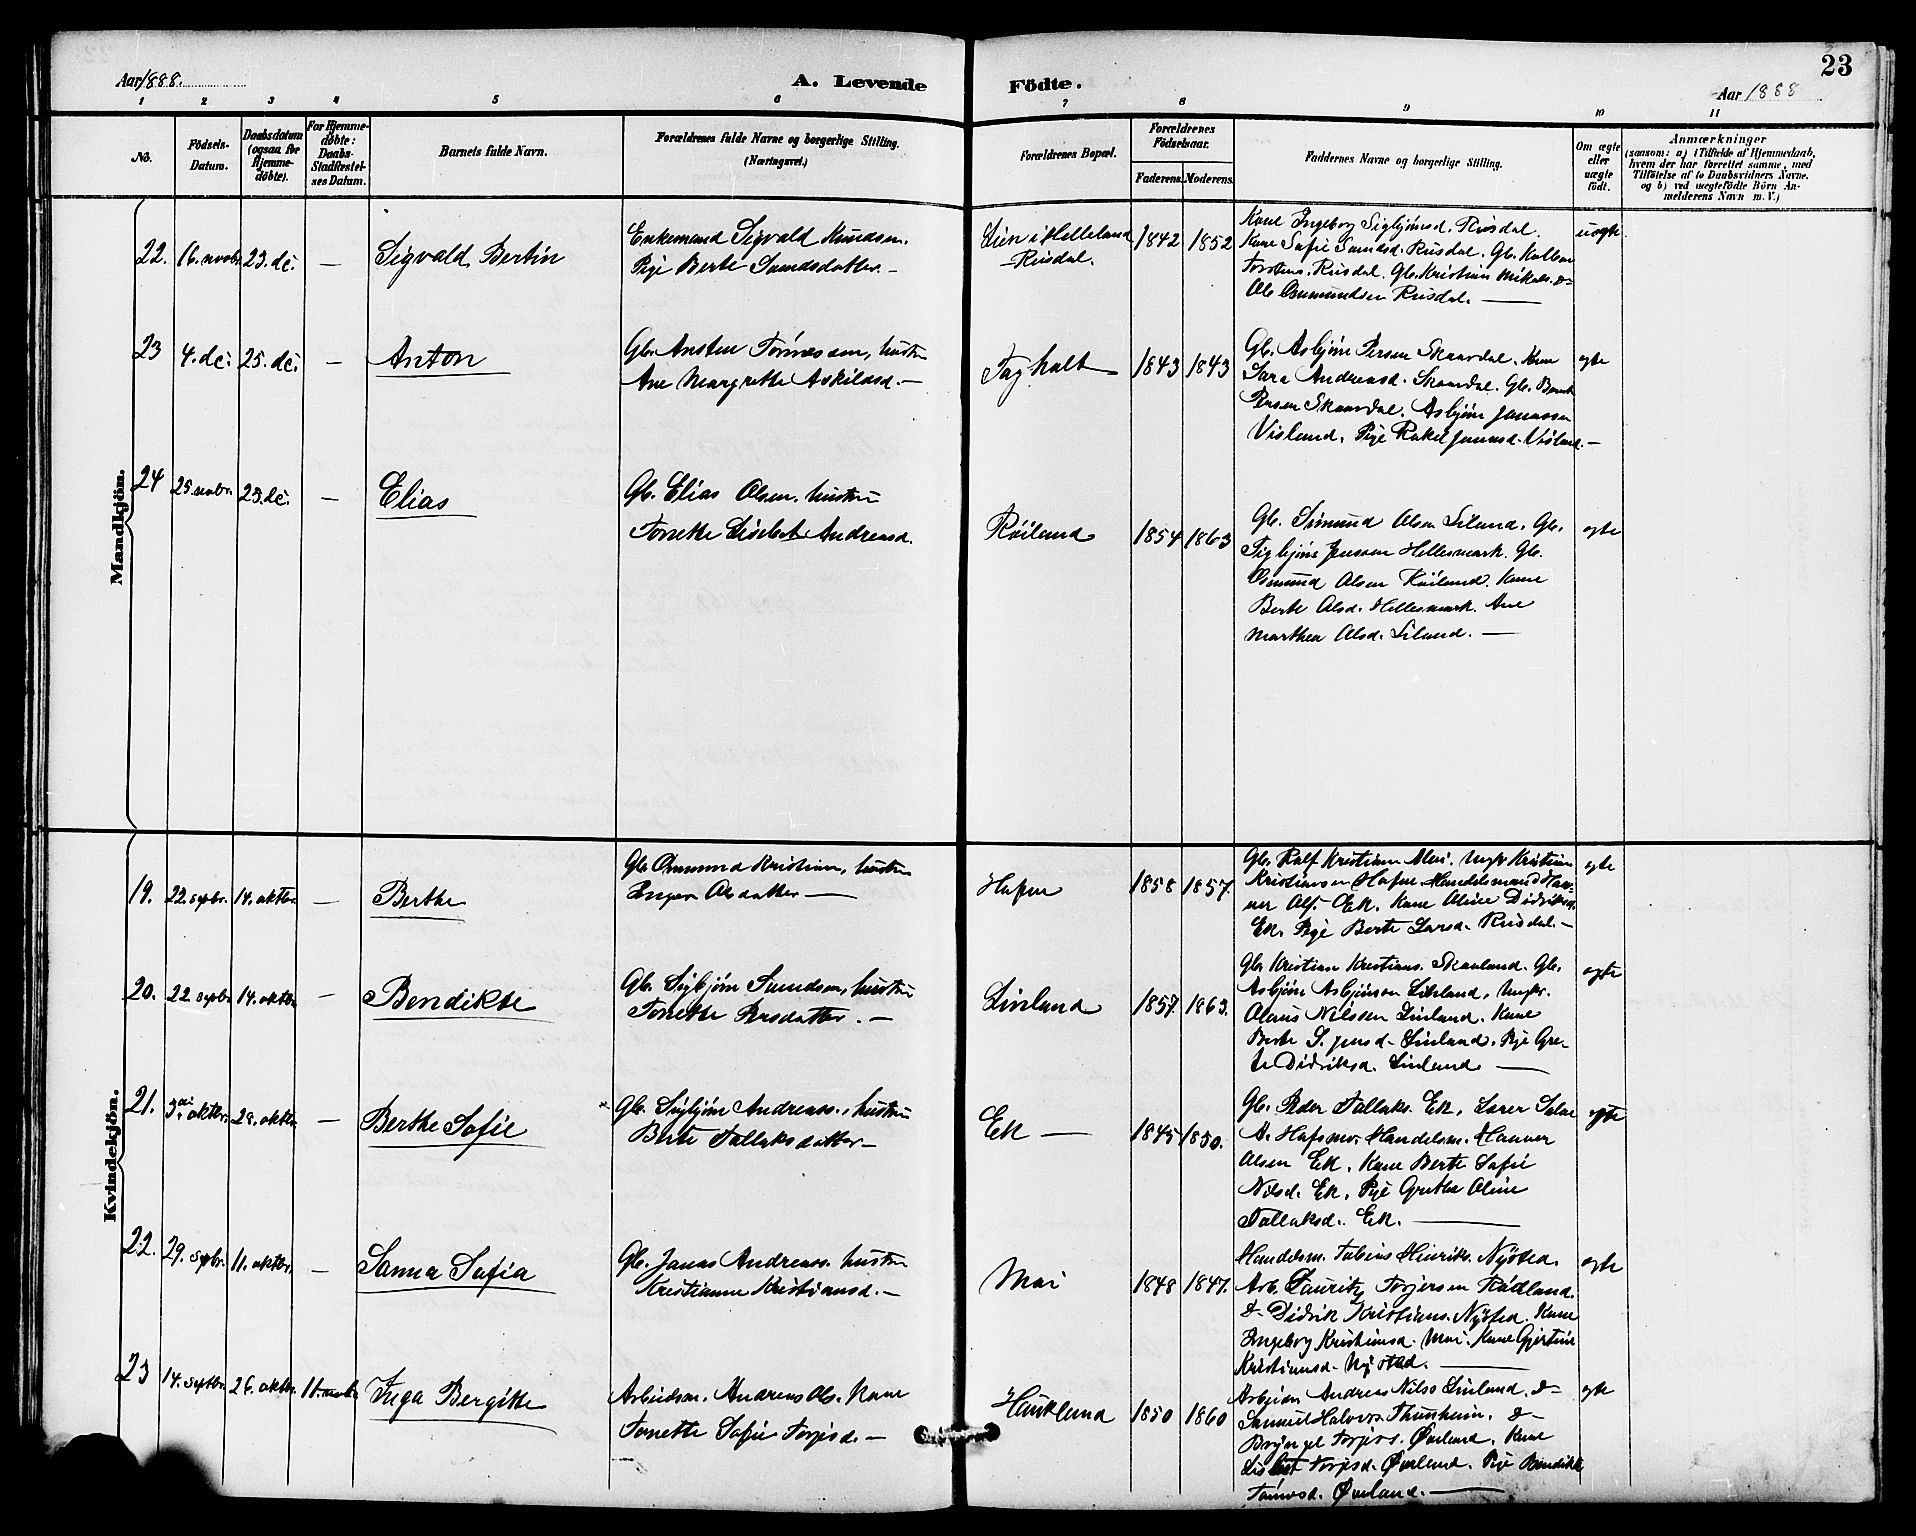 Aar 1888.
A. Levende
Födte.
Aar 1888
23
1 2 3 4 5 6 7 8 9 10 11
No.
Födsels-
Datum.
Daabsdatum
(ogsaa for
Hjemme-
döbte).
For Hjemme-
döbte:
Daabs-
Stadfæstel-
ses Datum.
Barnets fulde Navn.
Forældrenes fulde Navne og borgerlige Stilling.
(Næringsvei.)
Forældrenes Bopæl.
Forældrenes
Födselsaar.
Faderens. Moderens.
Faddernes Navne og borgerlige Stilling.
Om ægte
eller
uægte
födt.
Anmærkninger
(saasom: a) i Tilfælde af Hjemmedaab,
hvem der har forrettet samme, med
Tilföielse af to Daabsvidners Navne.
og b) ved uægtefödte Börn An-
melderens Navn m. V.)
Mandkjön.
22. 16. novbr. 23. dc. — Sigvald Bertin
Enkemand Sigvald Knudsen.
Pige Berte Samdsdatter. —
Lien i Helleland
Risdal.
1842 1852
Kone Ingeborg Sigbjörnsd. Risdal.
Kone Safie Samdsd. Risdal. Gb.
Risdal. Gb. Kristian Mikals. &
Ole Osmundsen Risdal. —
uægte
23 4. dc. 25. dc. — Anton
Gb. Ansten Tönnessen, hustru
Ane Margrethe Askilasd. —
Tagholt
1843 1843
Gb. Asbjörn Persen Skaardal. Kone
Sara Andreasd. Skaardal. Gb.
Persen Skaardal. Asbjörn Janassen
Visland, Pige Rakel Janasd. Visland. —
ægte
24 25. novbr. 23. dc. — Elias
Gb. Elias Olsen, hustru
Tonette Lisebet Andreasd.
Röiland
1854 1863
Gb. Simund Olsen Liland. Gb.
Sigbjörn Jenssen Hellesmark. Gb.
Osmund Olsen Röiland. Kone
Berte Olsd. Hellesmark. Ane
Marthea Olsd. Liland. —
ægte
Kvindekjön.
19. 22. sepbr. 14. oktbr. — Berthe
Gb. Osmund Kristians, hustru
Inger Olsdatter —
Hafsne
1858 1857.
Gb. Ralf Kristians Moi. Ungkr Kristian
Kristiansen Hafsne. Handelsmand Hav-
ner Ols. Ek. Kone Aline Didriksd.
Ek. Pige Berte Larsd. Risdal. —
ægte
20. 22. sepbr 14. oktbr — Bendikte
Gb. Sigbjörn Samdsen, hustru
Tonette Persdatter. —
Linland
1857. 1863.
Gb. Kristian Kristians. Skanland. Gb.
Asbjörn Asbjörnsen Linland, Ungkr.
Olaus Nilssen Linland. Kone
Berte S. jensd. Linland. Pige Gre-
te Didriksd. Linland —
ægte
21. 3die oktbr. 28. oktbr — Berthe Sofie
Gb. Sigbjörn Andreass., hustru
Berte Tallaksdatter —
Ek —
1845 1850.
Gb. Peder Tallaks. Ek, Lærer Salve
A. Hafsmo. Handelsm. Hauver
Olsen Ek. Kone Berte Safie
Nilsd. Ek. Pige Grethe Oline
Tallaksd. Ek. —
ægte
22. 29. sepbr. 11. oktbr. — Sanna Sofia
Gb. Janas Andreass. hustru
Kristianne Kristiansd. —
Moi
1848 1847.
Handelsm. Tobias Hinriks. Nysted.
Arb. Lauritz Torjersen Rödland.
& Didrik Kristians. Nysted. Kone
Ingeborg Kristiansd. Moi. Kone Gjertine
Kristiansd. Nysted. —
ægte
23 14. septbr. 26. oktbr. 11. novbr Inga Bergitte
Arbeidsm. Andreas Ols. Kone
Tonette Safie Torjesd. —
Haukland
1850 1860
Arbeidsm Andreas Nilss Linland. &
Samuel Halvors Thunheim. &
Bryngel Torjers. Överland. Kone
Lisbet Torjesd. Överland. Pige Bendikte
Tönnesd. Överland. —
ægte